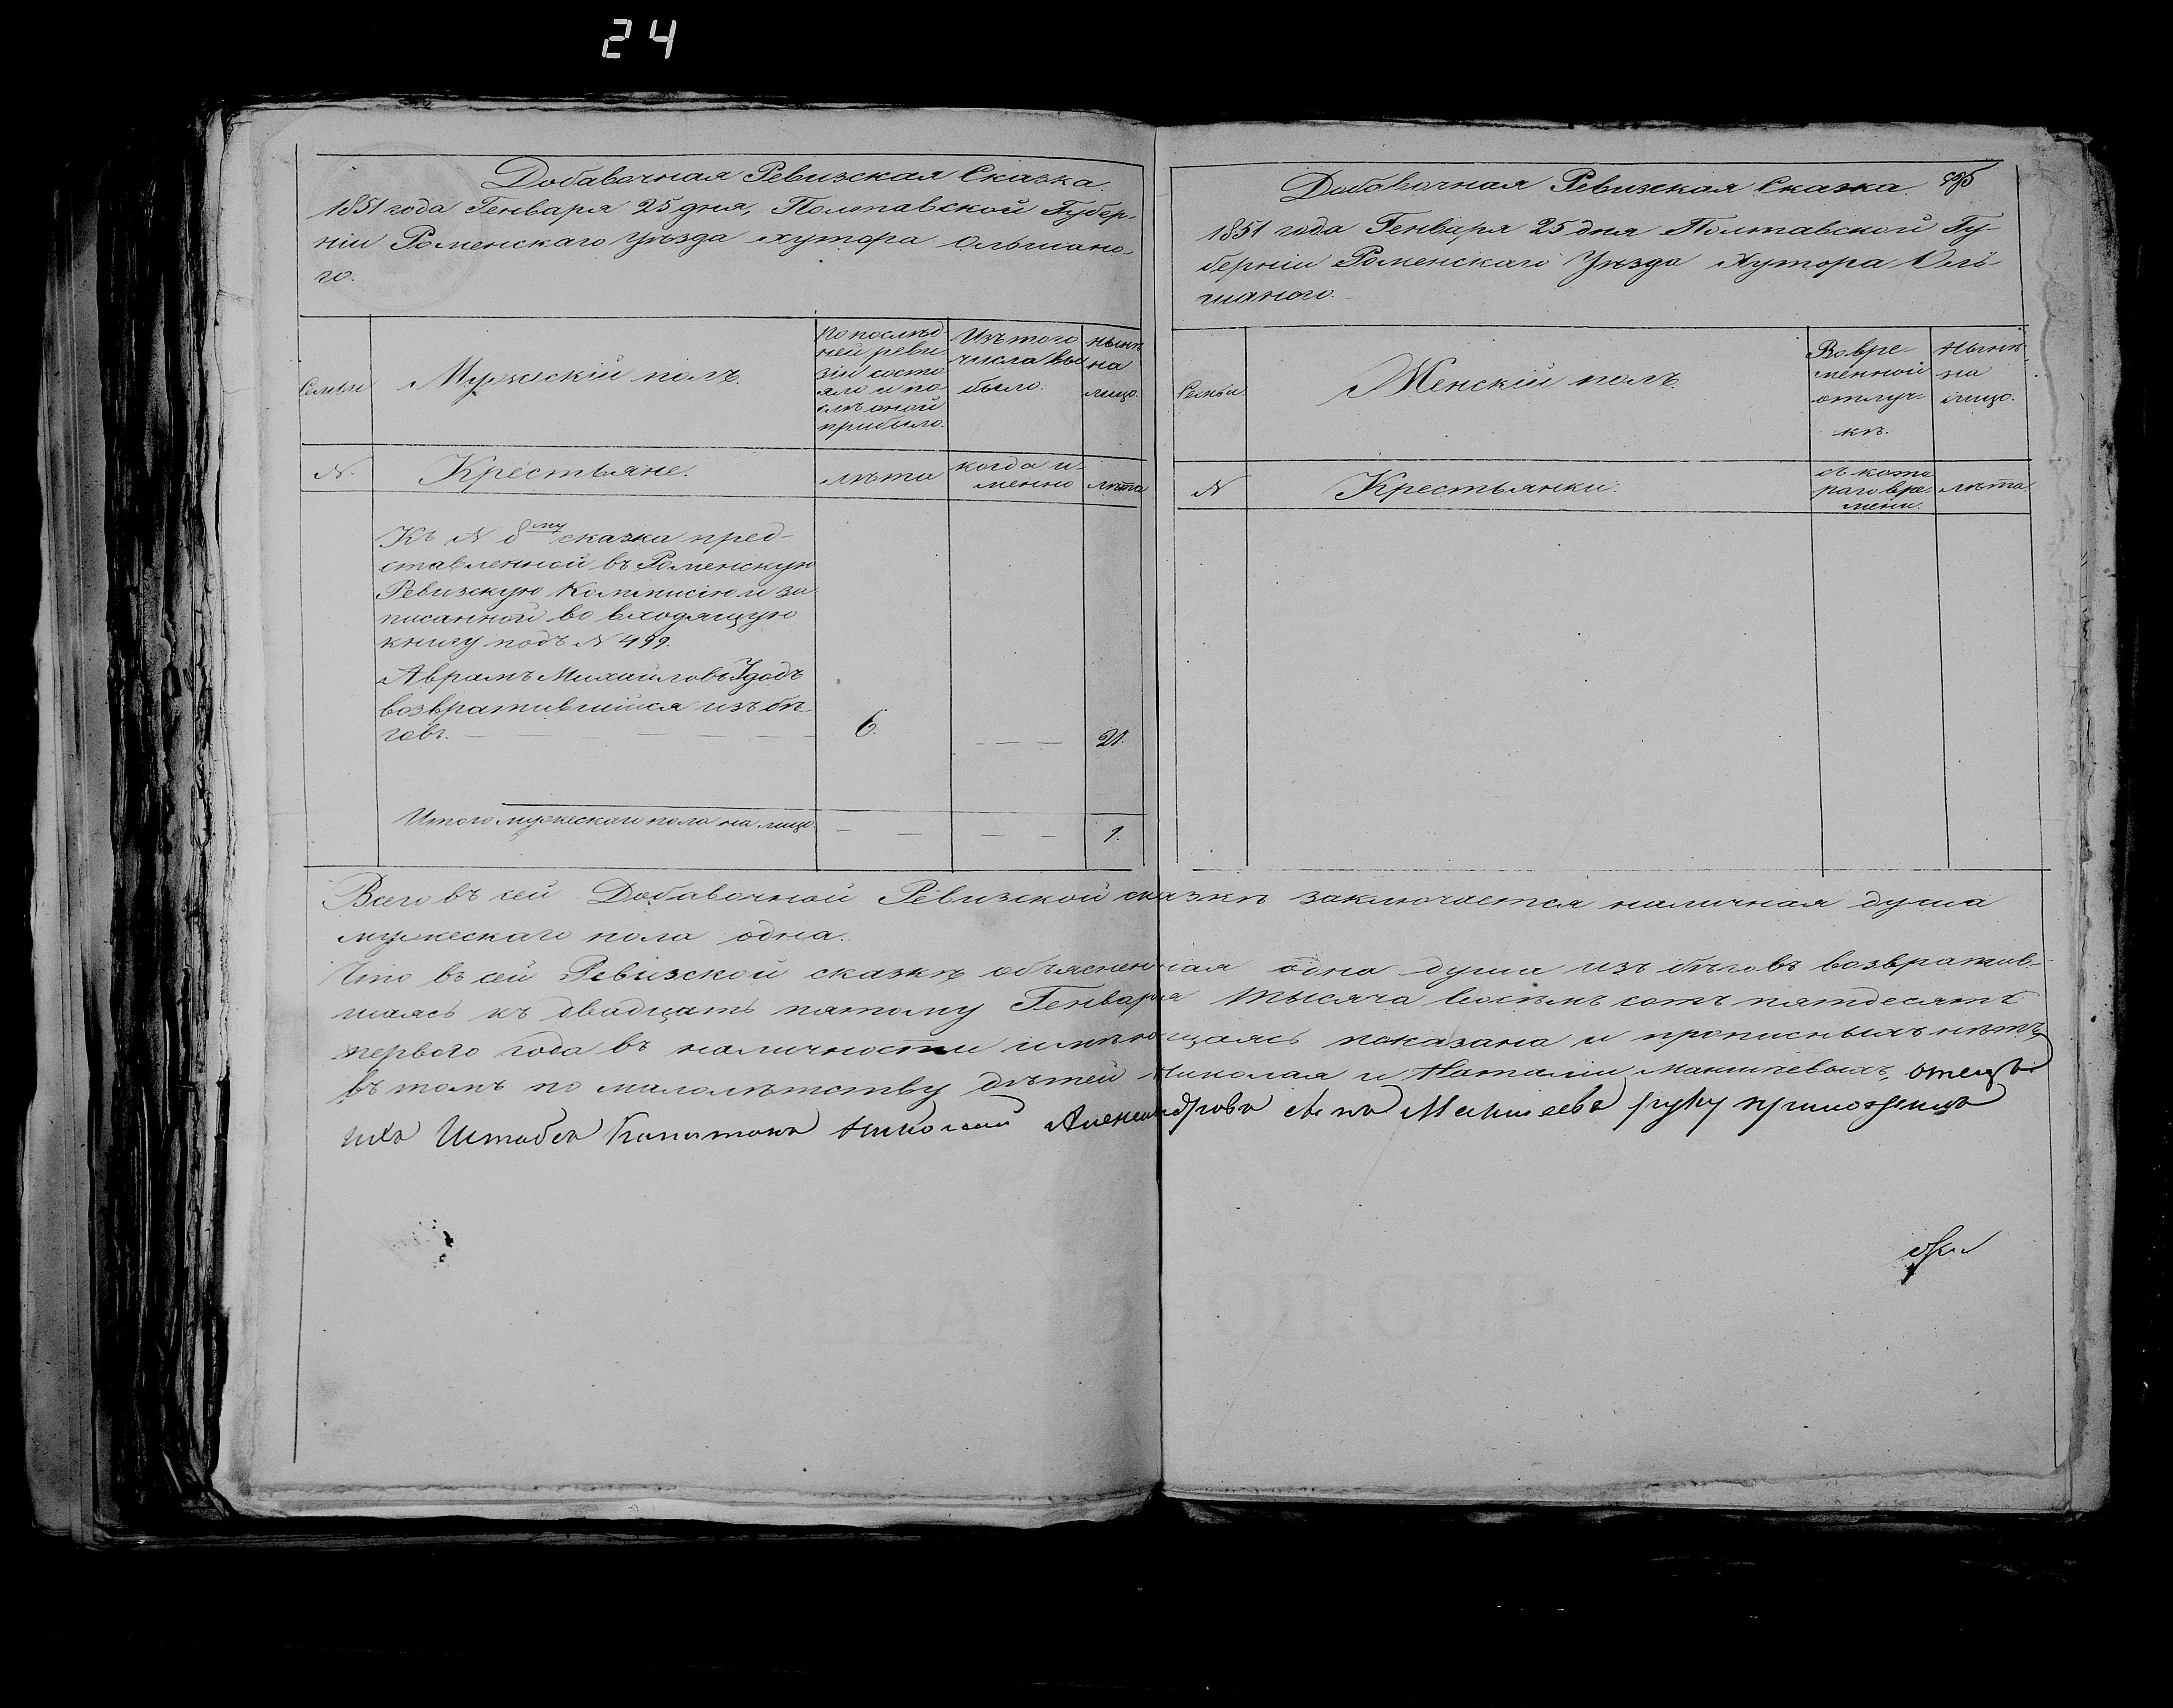 24
Добавочная Ревизская Сказка.
1851 года Генваря 25 дня, Полтавской Губер-
ніи Роменскаго уѣзда хутора Ольшано-
го.
Семьи
Мужескій полъ.
По послѣд-
ней реви-
зіи состо
яло и по
слѣ оной
прибыло.
Изъ того
числа вы
было.
нынѣ
на
лицо.
N.
Крестьяне.
лѣта
когда и-
менно
лѣта
Къ N 8му сказка пред-
ставленной въ Роменскую
Ревизскую Коммисію и за
писанной во входящую
книгу подъ N 499.
Аврамъ Михайловъ Удодъ
возвратившійся изъ бѣ-
говъ. 6. 21.
Итого мужескаго пола на лицо. 1.
Добавочная Ревизская Сказка
1851 года Генваря 25 дня Полтавской Гу-
берніи Роменскаго Уѣзда Хутора Оль-
шаного.
Семьи.
Женскій полъ.
Во вре-
менной
отлуч-
кѣ.
Нынѣ
на
лицо.
N
Крестьянки.
съ кото
раго вре-
мени.
лѣта.
Всего въ сей Добавочной Ревизской сказкѣ заключается наличная душа
мужескаго пола одна.
Что въ сей Ревизской сказкѣ объясненная одна душа изъ бѣговъ возвратив-
шаясь къ двадцать пятому Генваря тысяча восемъ сотъ пятдесятъ
первого года въ наличности имѣющаясь показана и прописныхъ нѣтъ
въ томъ по малолѣтству дѣтей Николая и Наталіи Макшеевыхъ, отецъ
ихъ Штабсъ Капитанъ Николай Александровъ сынъ Макшеевъ руку приложилъ